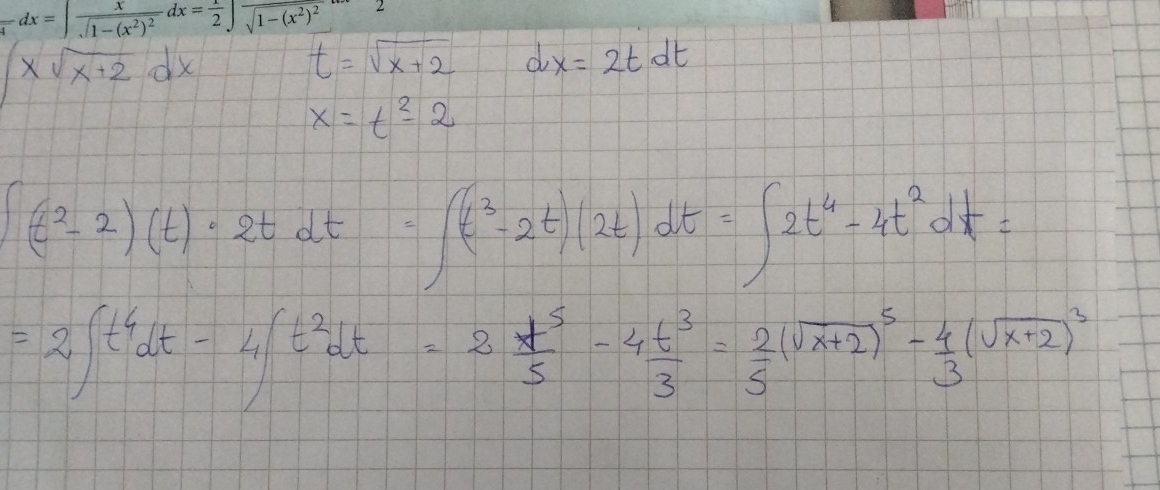 dx = ∫ x/√(1−(x²)²) dx = 1/2 ∫ /√(1−(x²)²) 2
∫ x √(x+2) dx t = √(x+2) dx = 2t dt
x = t² − 2
∫ (t² − 2)(t) · 2t dt = ∫ (t³ − 2t)(2t) dt = ∫ 2t⁴ − 4t² dt =
= 2 ∫ t⁴ dt − 4 ∫ t² dt = 2 t⁵/5 − 4 t³/3 = 2/5 (√(x+2))⁵ − 4/3 (√(x+2))³